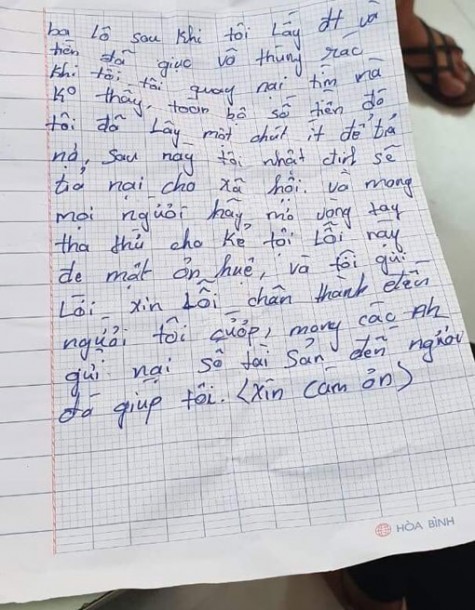 ba lô sau khi tôi lấy đt và
tiền đã giục vô thùng rác
khi tôi tôi quay nai tìm mà
ko thấy, toàn bộ số tiền đó
tôi đã lấy một chút ít để trả
nợ, sau này tôi nhất định sẽ
trả nai cho xã hội. và mong
mọi người hãy mở vòng tay
tha thứ cho kẻ tội lỗi này
de mất ơn huê, và tôi gửi
Lời xin Lỗi chân thành đến
người tôi cướp, mong các Ah
gửi nại số tài sản đến người
đã giúp tôi. (xin cảm ơn)
HÒA BÌNH